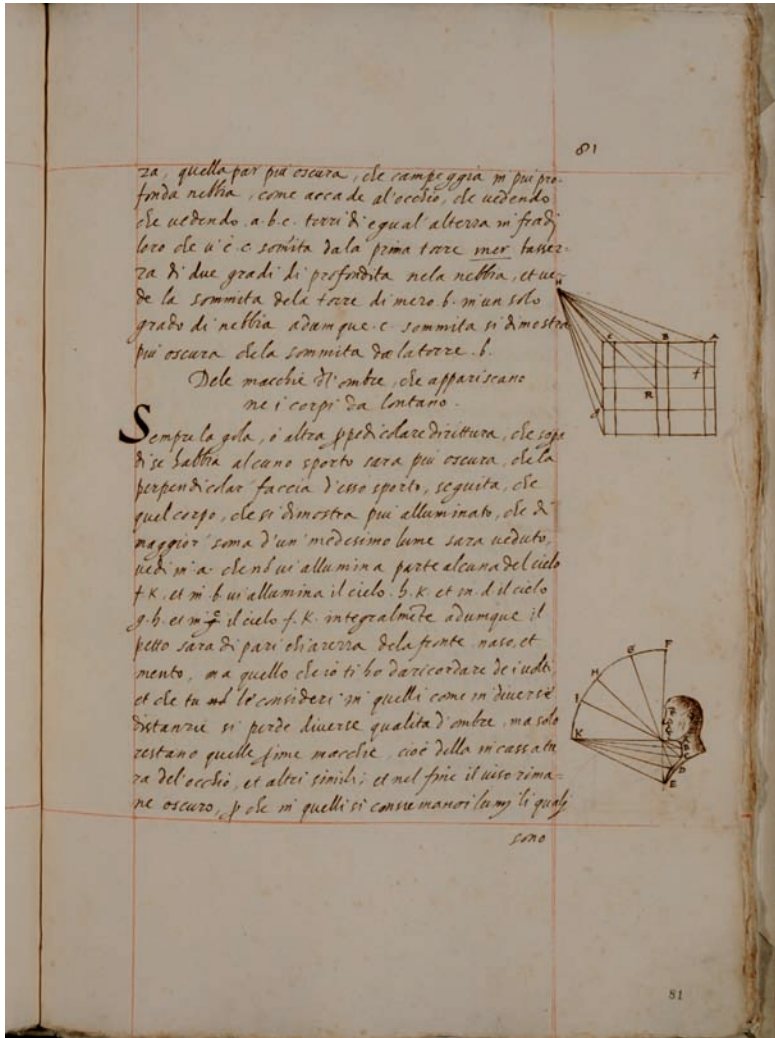 81
za, quella par piu oscura, che campeggia in piu pro-
fonda nebbia, come accade al'occhio, che vedendo
che vedendo .a.b.c. torri di egual' altezza infra di
loro che v'è .c. somita dala prima torre mer bassez-
za di due gradi di profondita nela nebbia, et ve-
de la sommita dela torre di mezo .b. in un solo
grado di nebbia adumque .c. sommita si dimostra
piu oscura che la sommita dela torre .b.
Dele macchie d'ombre, che appariscano
ne i corpi da lontano.
Sempre la gola, ò altra ppedicolare dirittura, che sopa
di se habbia alcuno sporto sara piu oscura, che la
perpendicolar' faccia d'esso sporto, seguita, che
quel corpo, che si dimostra piu alluminato, che di
maggior' soma d'un' medesimo lume sara veduto,
vedi in .a. che nō vi allumina parte alcuna del cielo
f.K. et in .b. vi allumina il cielo .h.K. et in .d. il cielo
g.h. et in c il cielo f.K. integralmēte adumque il
petto sara di pari chiarezza dela fronte naso, et
mento, ma quello che io ti ho da ricordare de i volti,
et che tu le consideri in quelli come in diverse
distanzie si perde diverse qualita d'ombre, ma solo
restano quelle prime macchie, cioè della incassatu
ra del'occhio, et altri simili; et nel fine il viso rima=
ne oscuro, p che in quelli si li lumj li qualj
sono
C B A
f
R
F
G
H
I
K
D
E
81